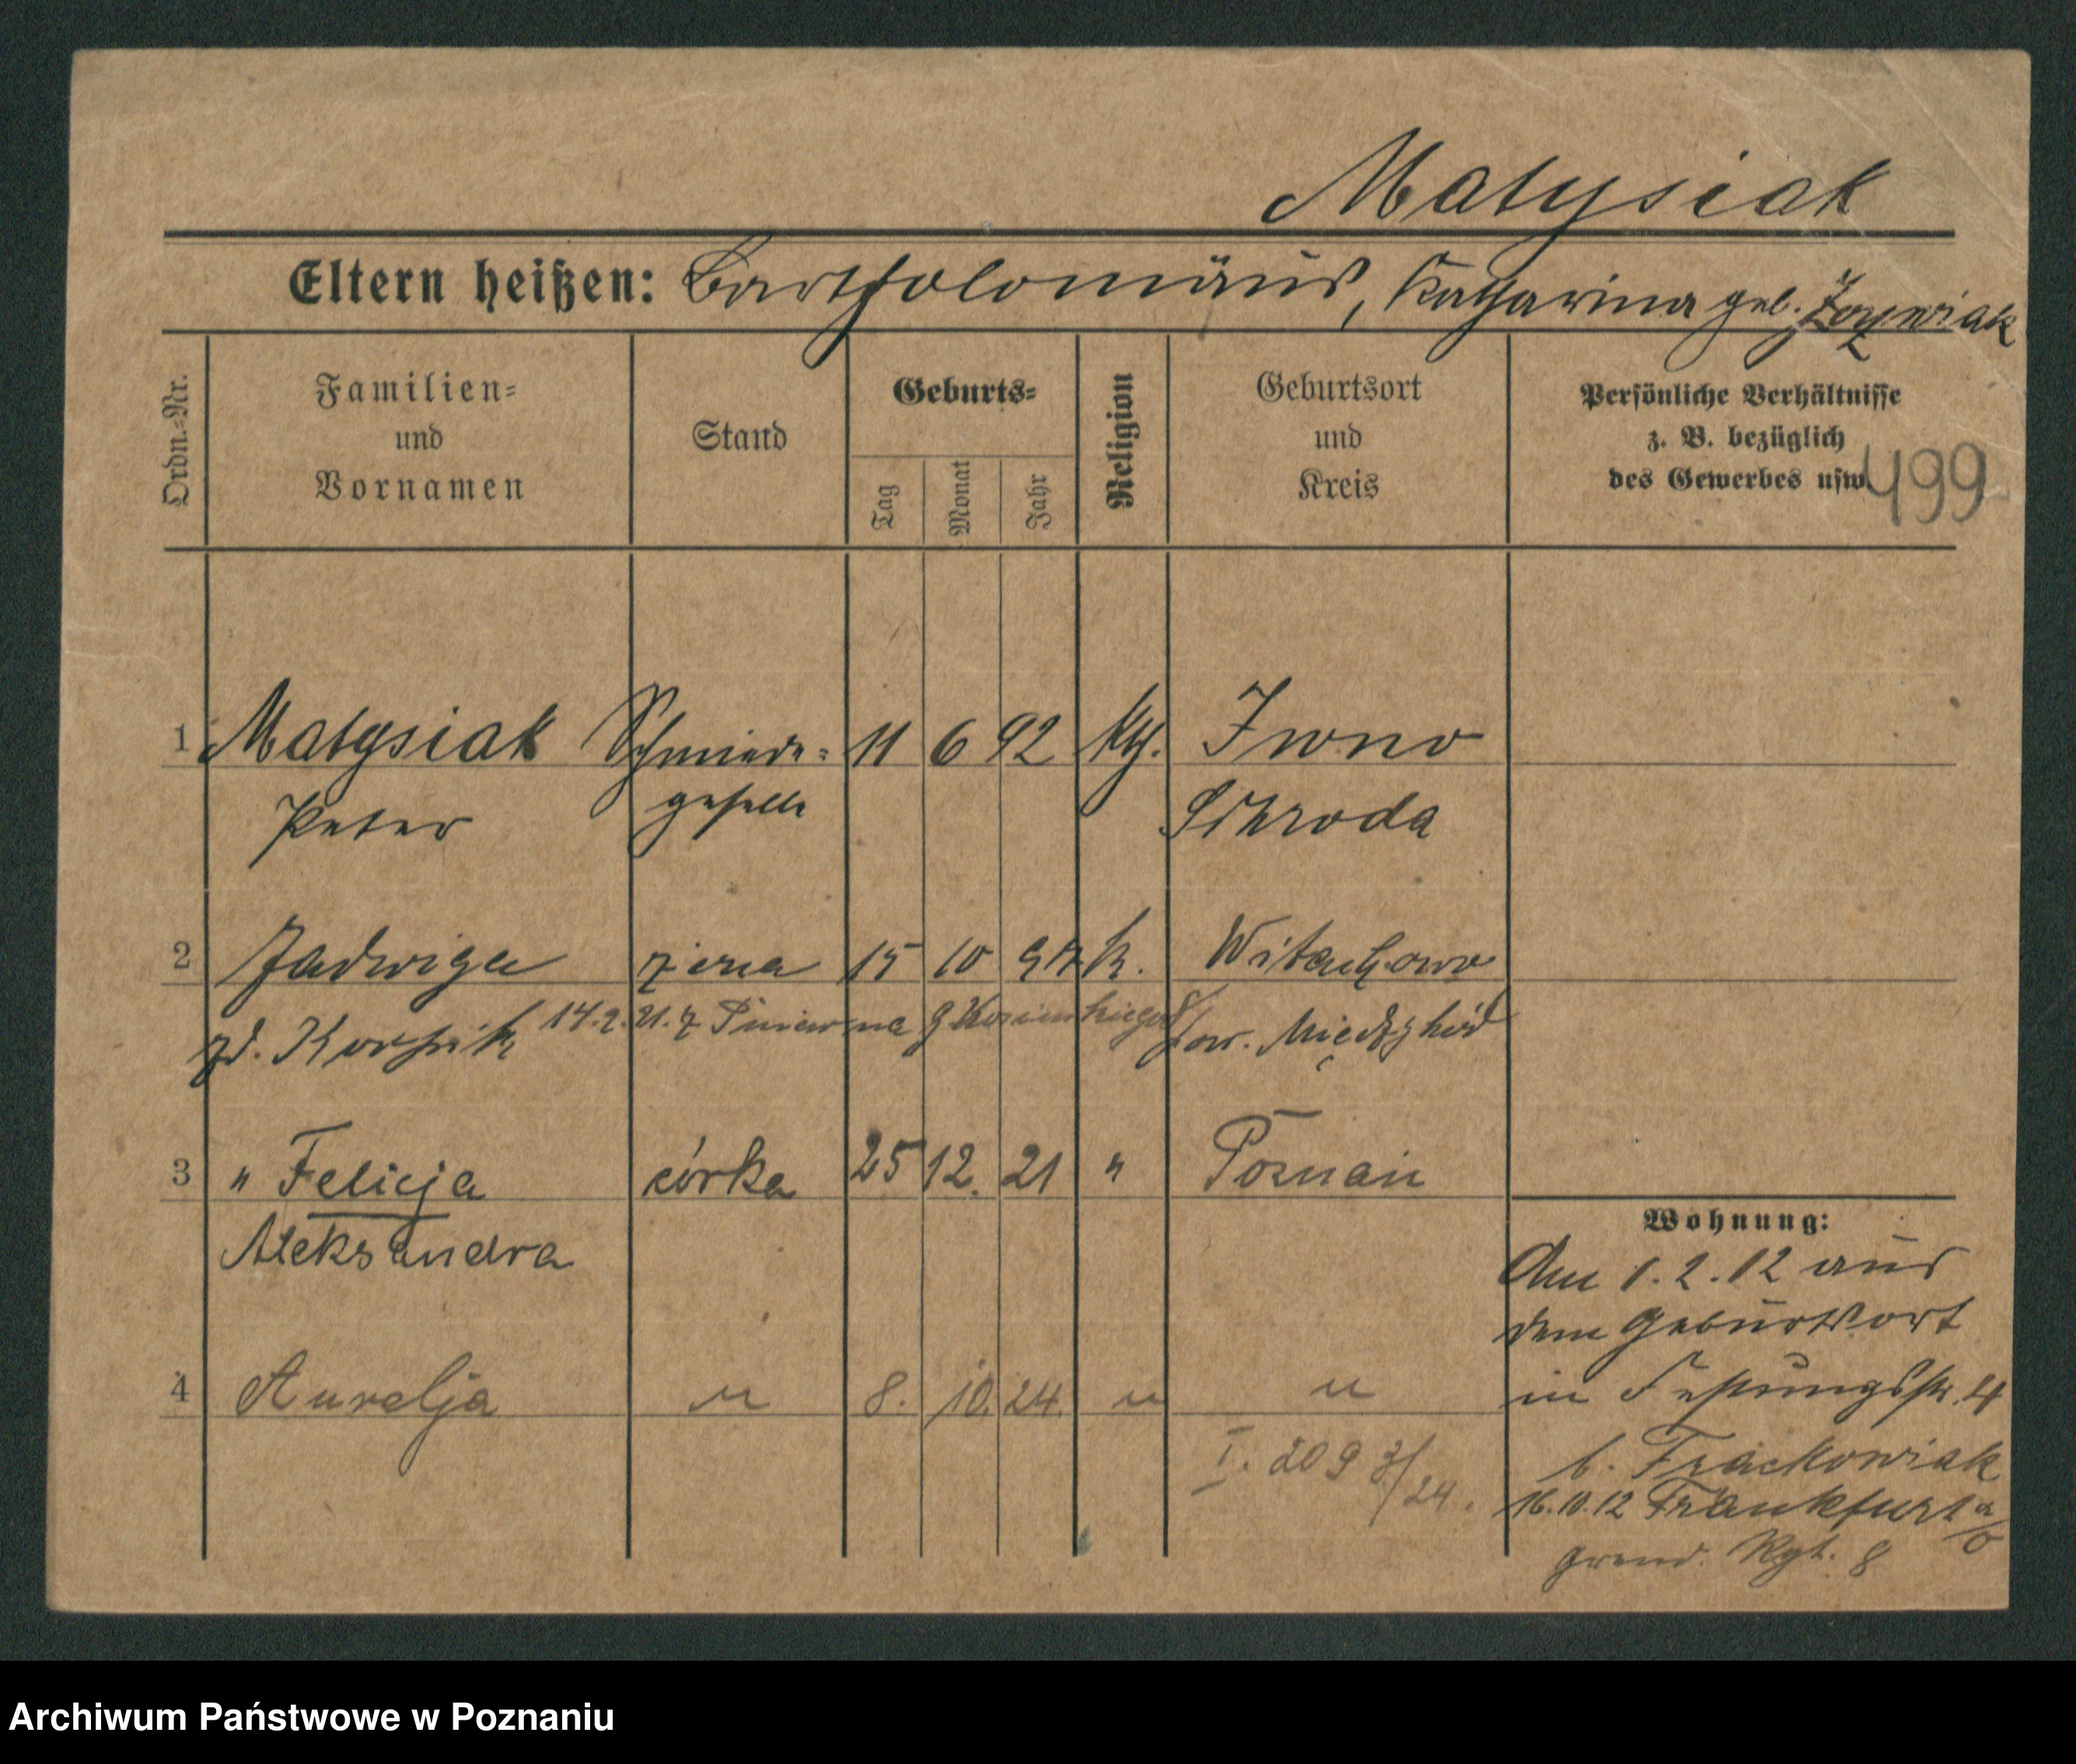 Matysiak
Eltern heißen: Bartholomäus, Katharina geb.
Ordn.-Nr.
Familien- und Vornamen
Stand
Geburts-
Tag
Monat
Jahr
Religion
Geburtsort und Kreis
Persönliche Verhältnisse
z. B. bezüglich
des Gewerbes usw.
499
1 Matysiak Schmiede- 11 6 92 kth. Iwno
Peter geselle Schroda
2 Jadwiga żona 15 10 97 k.
zd. 14.2.21. z Pniew na pow. Międzychód
3 " Felicja córka 25 12. 21 " Poznań
Aleksandra
4 Aurelja " 8. 10. 24. " "
I. 209 3/24.
Wohnung:
Am 1.2.12 aus
dem Geburtsort
in Festungsstr. 4
b. Frackowiak
16.10.12 Frankfurt a/O
Grend. Rgt. 8
Archiwum Państwowe w Poznaniu